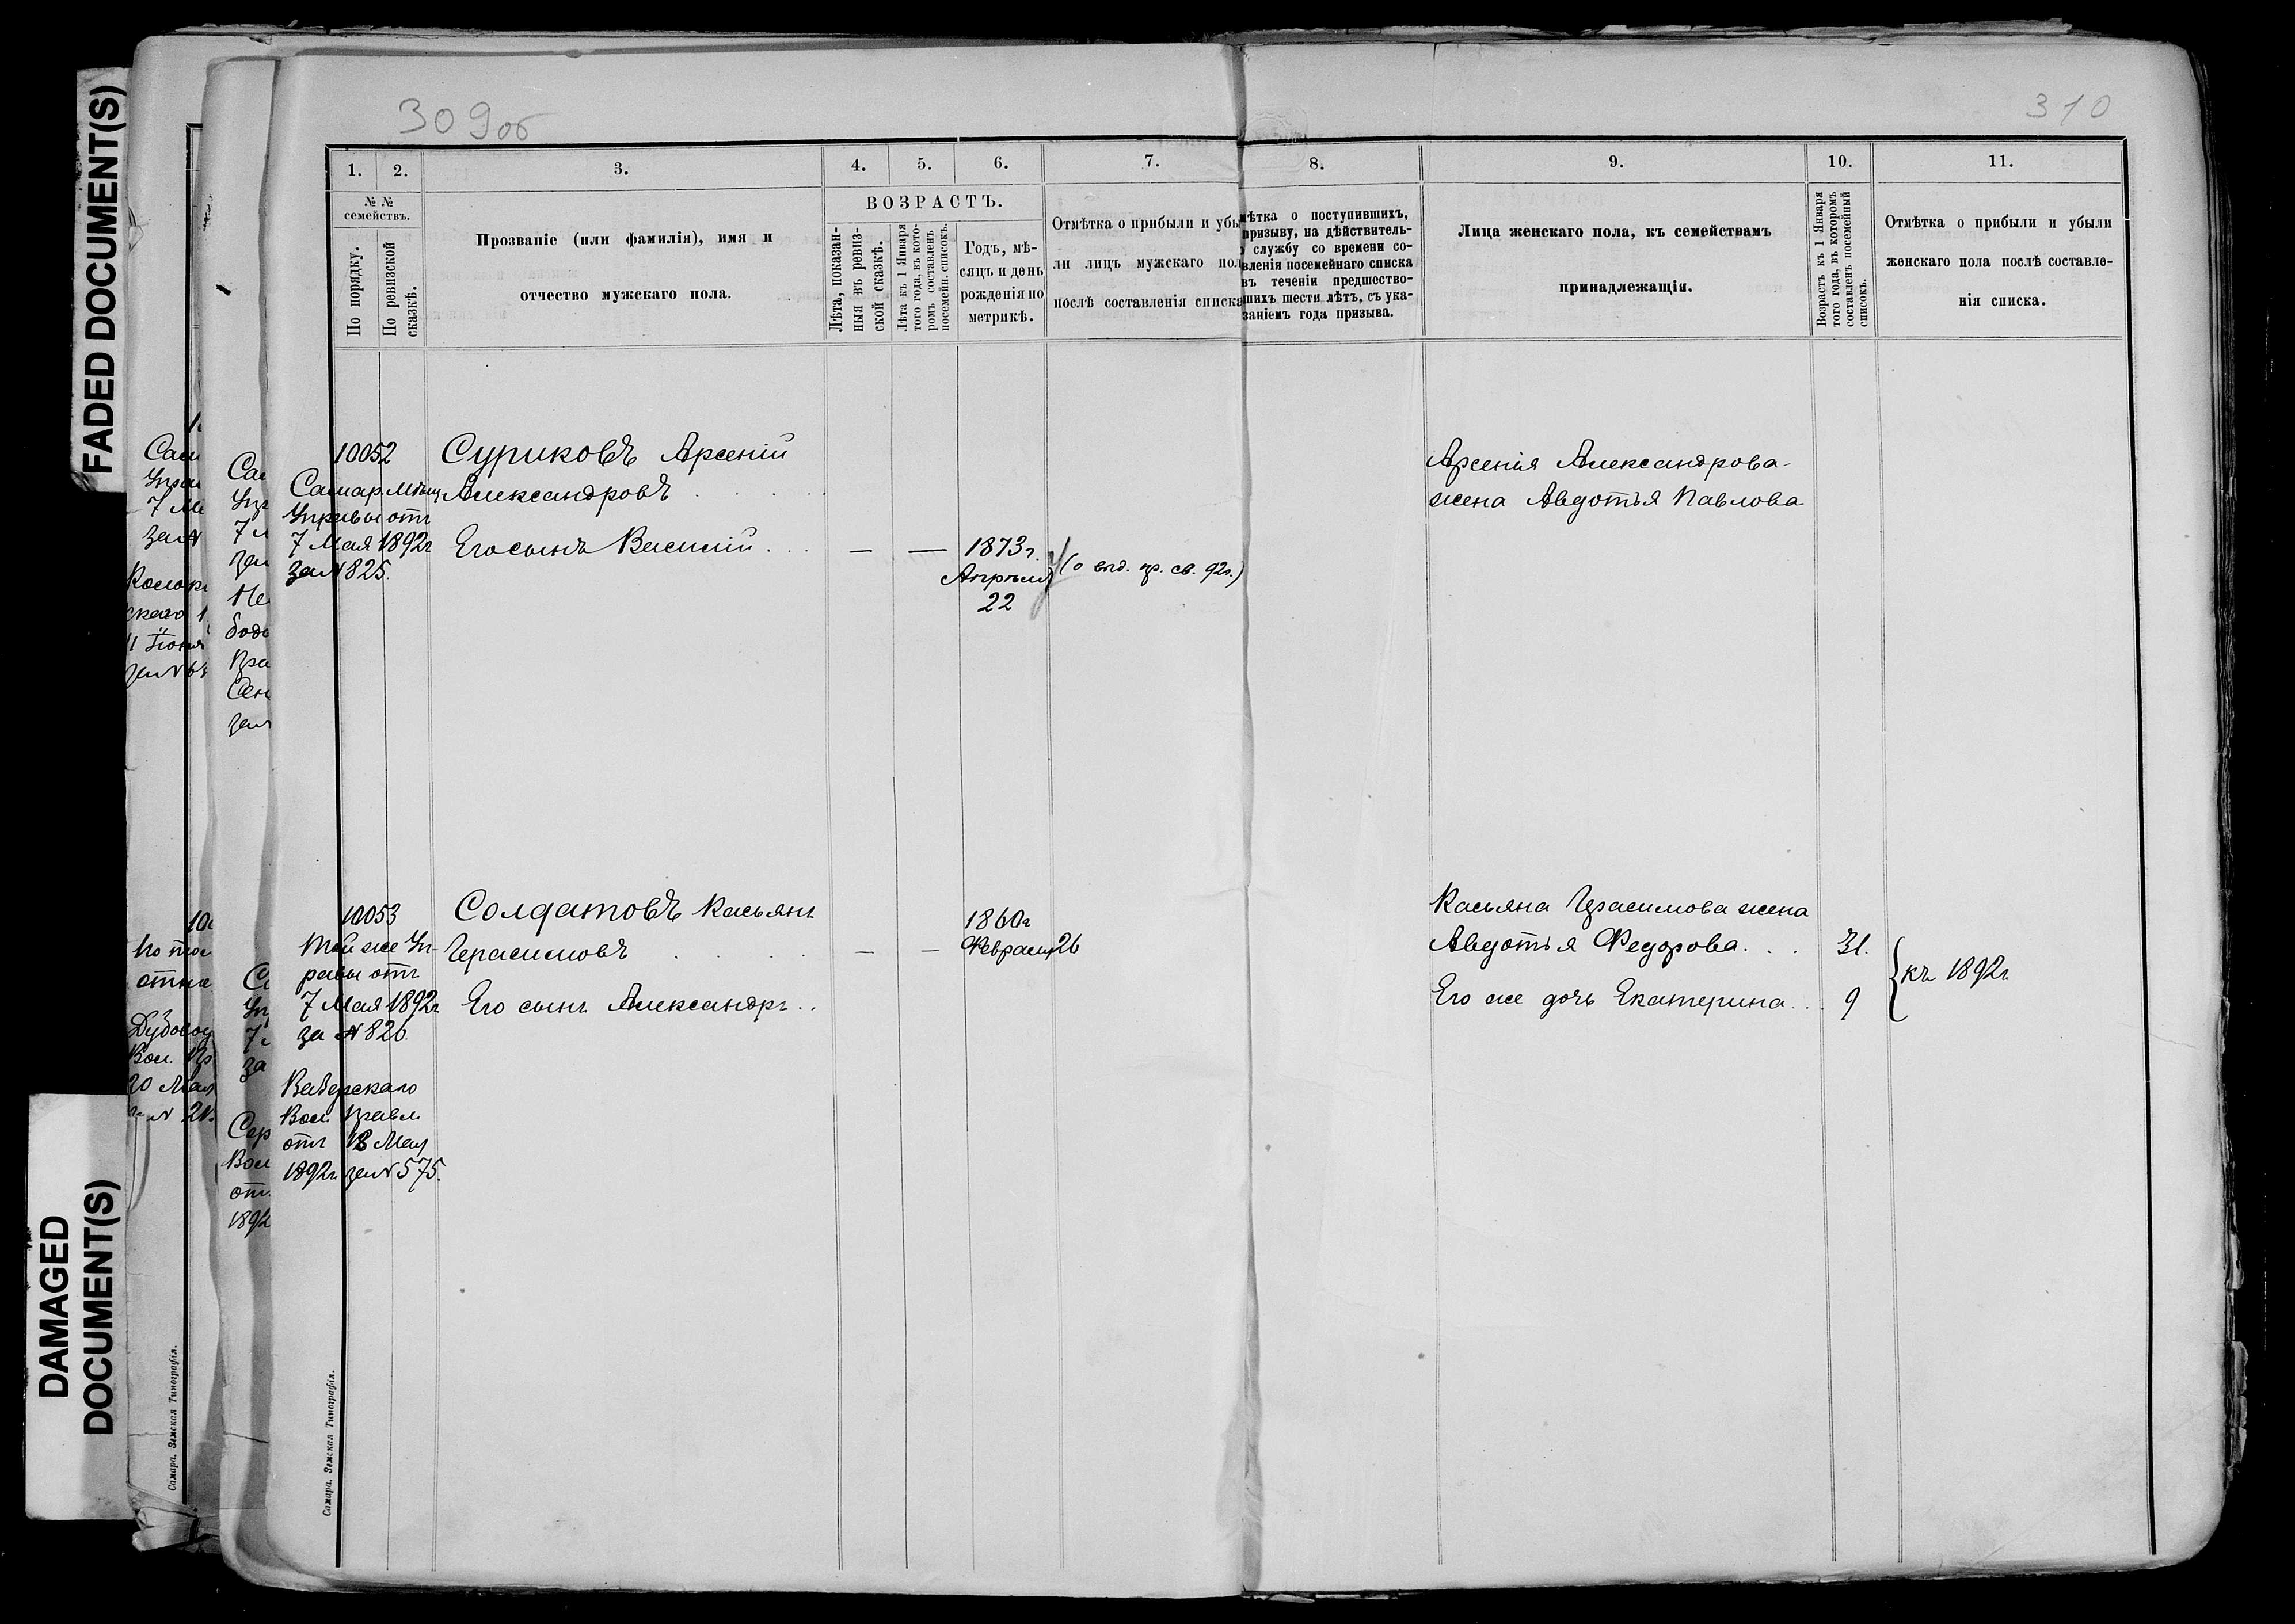 FADED DOCUMENT(S)
DAMAGED
DOCUMENT(S)
309об
310
1.
2.
3.
4.
5.
6.
7.
8.
9.
10.
11.
№ №
семействъ.
По порядку.
По ревизской
сказкѣ.
Прозваніе (или фамилія), имя и
отчество мужскаго пола.
ВОЗРАСТЪ.
Лѣта, показан-
ныя въ ревиз-
ской сказкѣ.
Лѣта къ 1 Января
того года, въ кото-
ромъ составленъ
посемейн. списокъ.
Годъ, мѣ-
сяцъ и день
рожденія по
метрикѣ.
Отмѣтка о прибыли и убы
ли лицъ мужскаго пол
послѣ составленія списка
мѣтка о поступившихъ,
призыву, на дѣйствитель-
службу со времени со-
вленія посемейнаго списка
въ теченіи предшество-
шихъ шести лѣтъ, съ ука-
заніемъ года призыва.
Лица женскаго пола, къ семействамъ
принадлежащія.
Возрастъ къ 1 Января
того года, въ которомъ
составленъ посемейный
списокъ.
Отмѣтка о прибыли и убыли
женскаго пола послѣ составле-
нія списка.
10052
Самар. Мѣщ.
Управы отъ
7 Мая 1892г
за № 825.
Суриковъ Арсеній
Александровъ
Его сынъ Василій
— — 1873г.
Апрѣля
22
(о выд. пр. св. 92г.)
Арсенія Александрова
жена Авдотья Павлова
10053
Той же Уп-
равы отъ
7 Мая 1892г
за № 826.
Вол. Правл.
отъ 18 Мая
1892г. за № 575.
Солдатовъ Касьянъ
Герасимовъ
Его сынъ Александръ
— — 1860г
Февраля 26
Касьяна Герасимова жена
Авдотья Федорова. 31.
Его же дочь Екатерина 9
къ 1892г
Самара. Земская Типографія.
Самара. Земская Типографія.